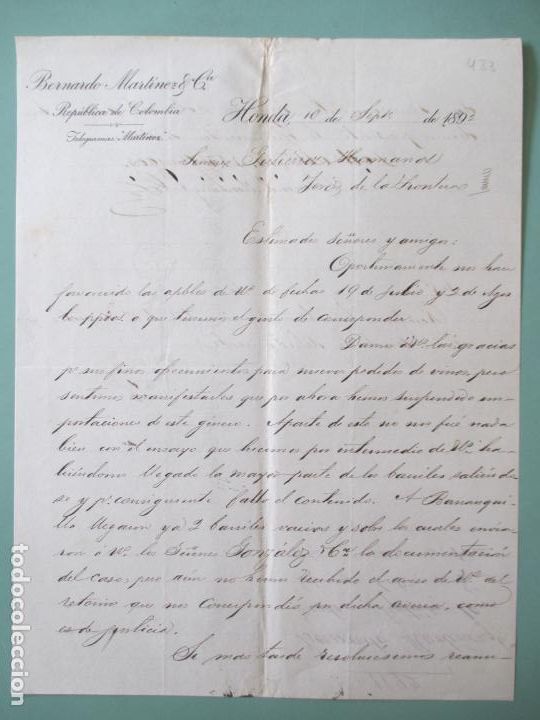 433
Bernardo Martínez & Cía
República de Colombia
Telegramas "Martinez"
Honda, 10 de Sept. de 189
Señores Gutiérrez Hermanos
Jeréz de la Frontera
Estimados Señores y amigos:
Oportunamente nos han
favorecido las apbles de Vs. de fechas 19 de Julio y 2 de Agos
to ppdos a que tenemos el gusto de corresponder.
Damos á Vs. las gracias
pr. sus finos ofrecimientos para nuevos pedidos de vinos, pero
sentimos manifestarles que por ahora hemos suspendido im-
portaciones de este género. Aparte de esto no nos fué nada
bien con el ensayo que hicimos por intermedio de Vs. ha-
biéndonos llegado la mayor parte de los barriles
y pr. consiguiente falto el contenido. A Barranqui-
lla llegaron ya 2 barriles vacíos y sobre los cuales envia-
ron á Vs. los Señores González & Cía. la documentación
del caso; pero aún no hemos recibido el aviso de Vs. del
retorno que nos corresponde por dicha avería, como
es de justicia.
Si mas tarde resolviesemos reanu-
todocoleccion